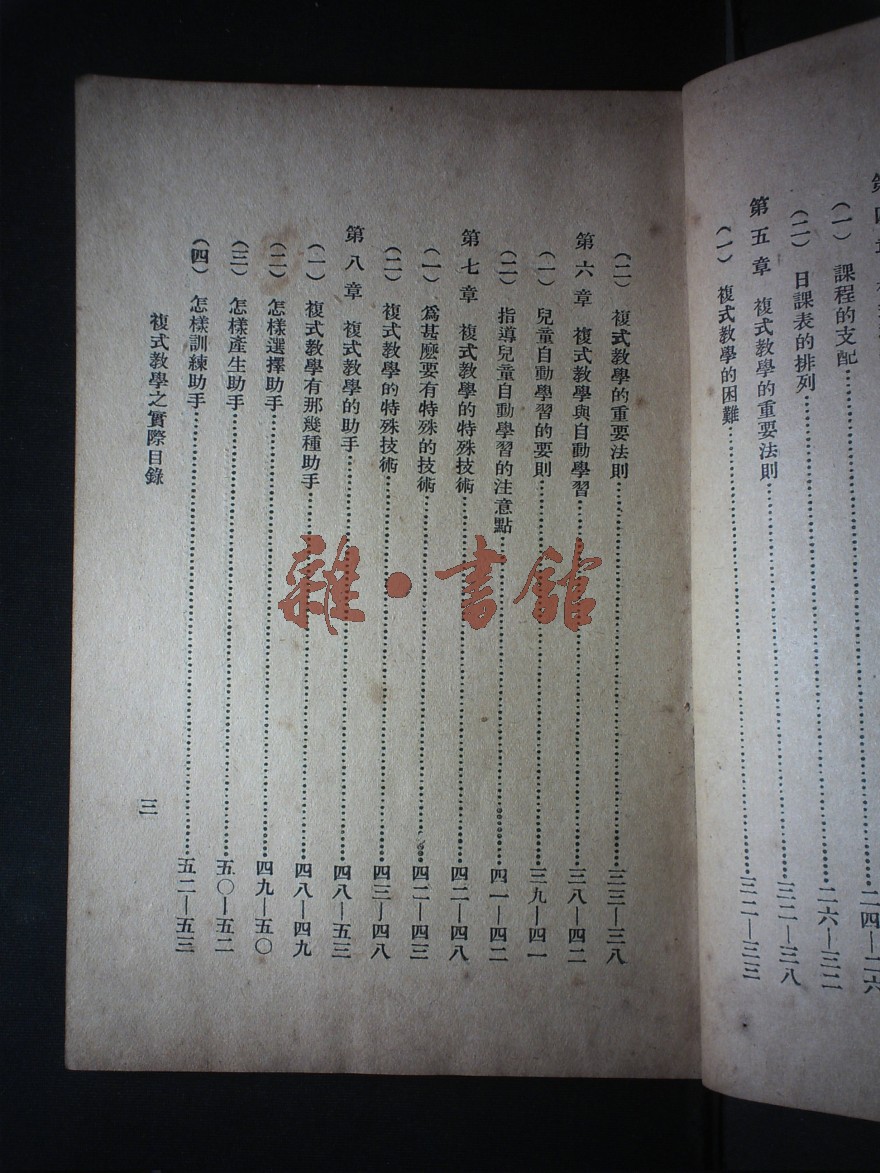 (一) 課程的支配……二四—二六
(二) 日課表的排列……二六—三二
第五章 複式教學的重要法則……三二—三八
(一) 複式教學的困難……三二—三三
(二) 複式教學的重要法則……三三—三八
第六章 複式教學與自動學習……三八—四二
(一) 兒童自動學習的要則……三九—四一
(二) 指導兒童自動學習的注意點……四一—四二
第七章 複式教學的特殊技術……四二—四八
(一) 爲甚麽要有特殊的技術……四二—四三
(二) 複式教學的特殊技術……四三—四八
第八章 複式教學的助手……四八—五三
(一) 複式教學有那幾種助手……四八—四九
(二) 怎樣選擇助手……四九—五〇
(三) 怎樣產生助手……五〇—五二
(四) 怎樣訓練助手……五二—五三
複式教學之實際目錄
三
雜·書館